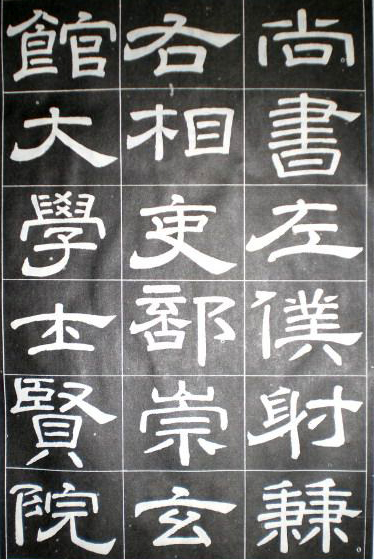 尚書左僕射兼
右相吏部崇玄
館大學士賢院